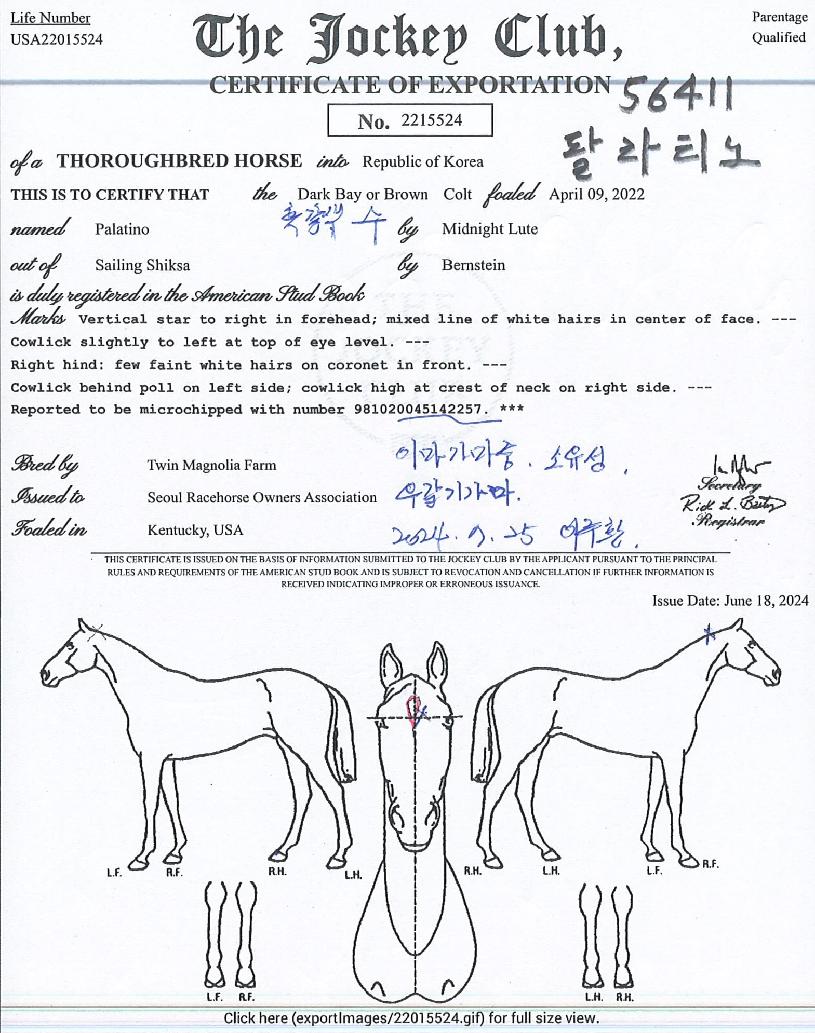 Life Number
USA22015524
The Jockey Club,
Parentage
Qualified
CERTIFICATE OF EXPORTATION
56411
No. 2215524
팔라티노
of a THOROUGHBRED HORSE into Republic of Korea
THIS IS TO CERTIFY THAT the Dark Bay or Brown Colt foaled April 09, 2022
named Palatino 수 by Midnight Lute
out of Sailing Shiksa by Bernstein
is duly registered in the American Stud Book
Marks Vertical star to right in forehead; mixed line of white hairs in center of face. ---
Cowlick slightly to left at top of eye level. ---
Right hind: few faint white hairs on coronet in front. ---
Cowlick behind poll on left side; cowlick high at crest of neck on right side. ---
Reported to be microchipped with number 981020045142257. ***
Bred by Twin Magnolia Farm
Issued to Seoul Racehorse Owners Association
Foaled in Kentucky, USA
Secretary
Registrar
THIS CERTIFICATE IS ISSUED ON THE BASIS OF INFORMATION SUBMITTED TO THE JOCKEY CLUB BY THE APPLICANT PURSUANT TO THE PRINCIPAL
RULES AND REQUIREMENTS OF THE AMERICAN STUD BOOK AND IS SUBJECT TO REVOCATION AND CANCELLATION IF FURTHER INFORMATION IS
RECEIVED INDICATING IMPROPER OR ERRONEOUS ISSUANCE.
Issue Date: June 18, 2024
L.F. R.F. R.H. L.H. R.H. L.H. L.F. R.F.
L.F. R.F. L.H. R.H.
Click here (exportImages/22015524.gif) for full size view.